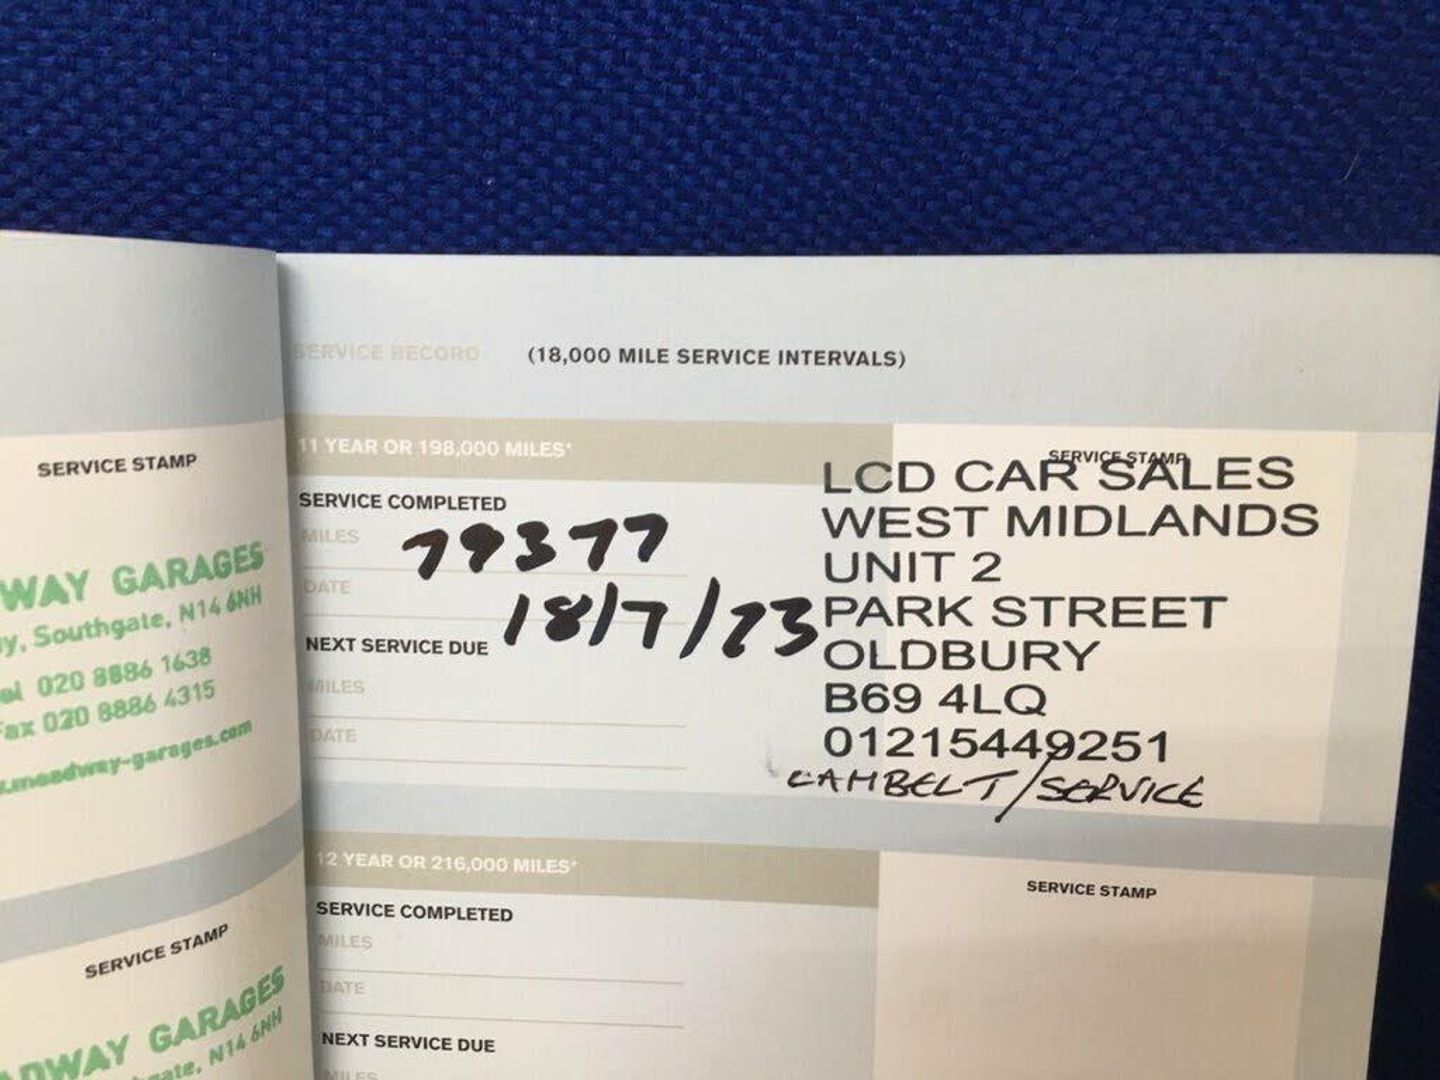 SERVICE STAMP
WAY GARAGES
y, Southgate, N14 6NH
el 020 8886 1638
Fax 020 8886 4315
.meadway-garages.com
SERVICE STAMP
ADWAY GARAGES
gate, N14 6NH
SERVICE RECORD (18,000 MILE SERVICE INTERVALS)
11 YEAR OR 198,000 MILES*
SERVICE COMPLETED
MILES 79377
DATE 18/7/23
NEXT SERVICE DUE
MILES
DATE
SERVICE STAMP
LCD CAR SALES
WEST MIDLANDS
UNIT 2
PARK STREET
OLDBURY
B69 4LQ
01215449251
CAMBELT/SERVICE
12 YEAR OR 216,000 MILES*
SERVICE COMPLETED
MILES
DATE
NEXT SERVICE DUE
MILES
SERVICE STAMP